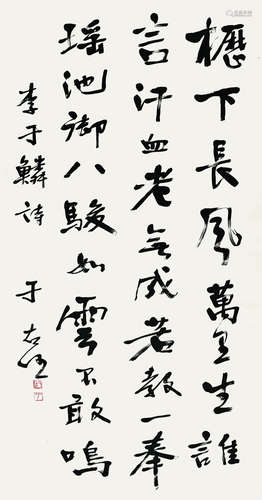 櫪下長風萬里生誰
言汗血老無成若教一奉
瑶池御八駿如雲不敢鳴
李于鱗詩 于右任